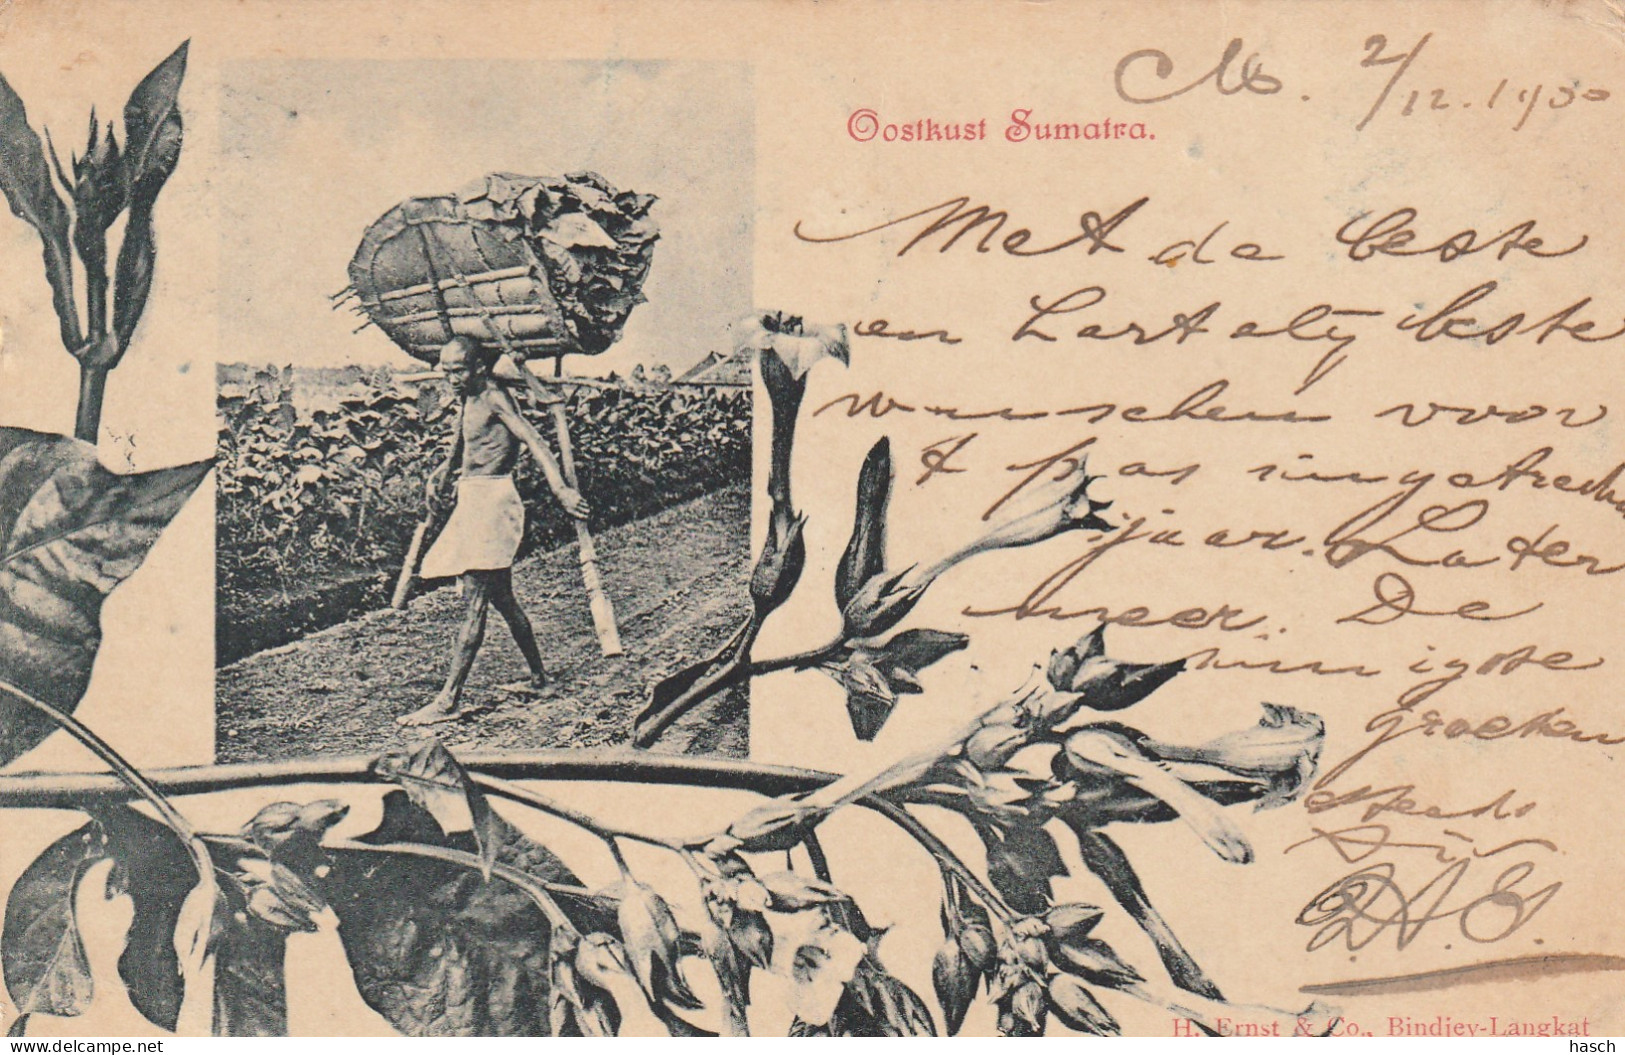 M. 2/12.1900
Oostkust Sumatra.
Met de beste
en hartelij kste
wenschen voor
t pas ingetreden
jaar. Later
meer. De
innigste
groeten
steeds
H. Ernst & Co., Bindjey-Langkat
hasch
delcampe.net